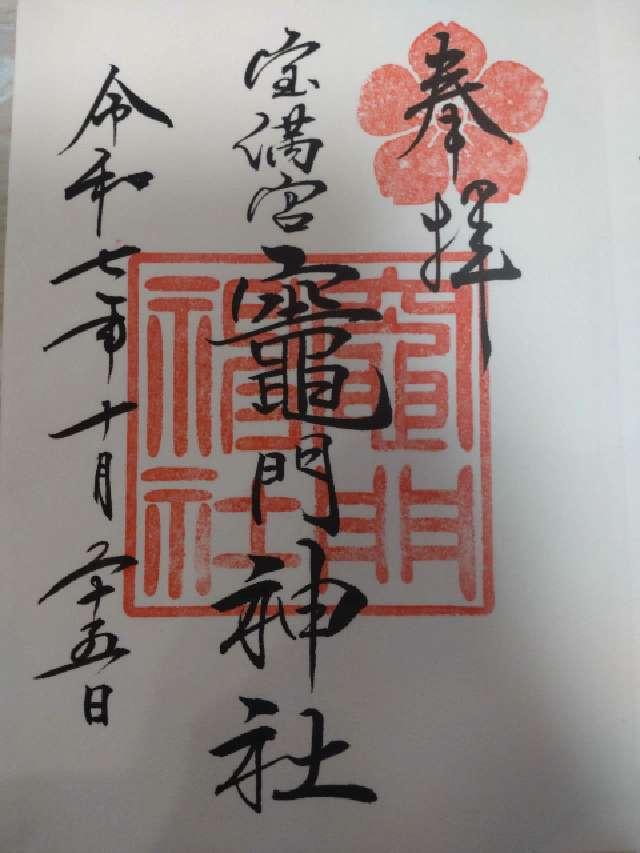 奉拝
宝満宮
竈門神社
令和七年十月二十五日
竈門
神社